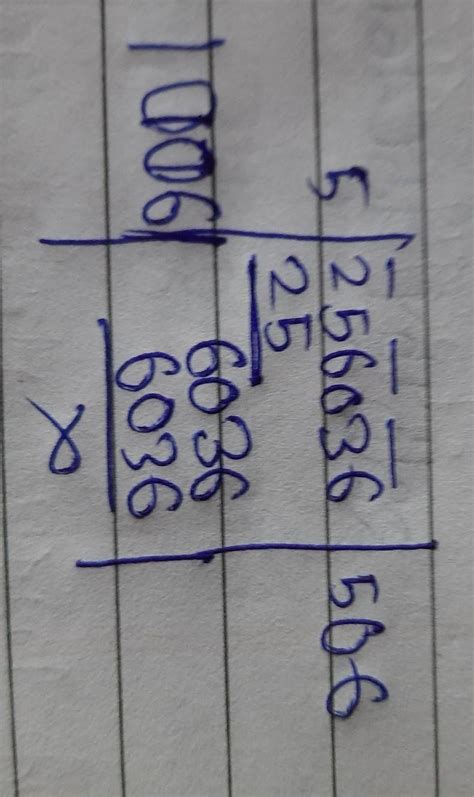 5 256036 506
25
6036
1006 6036
x